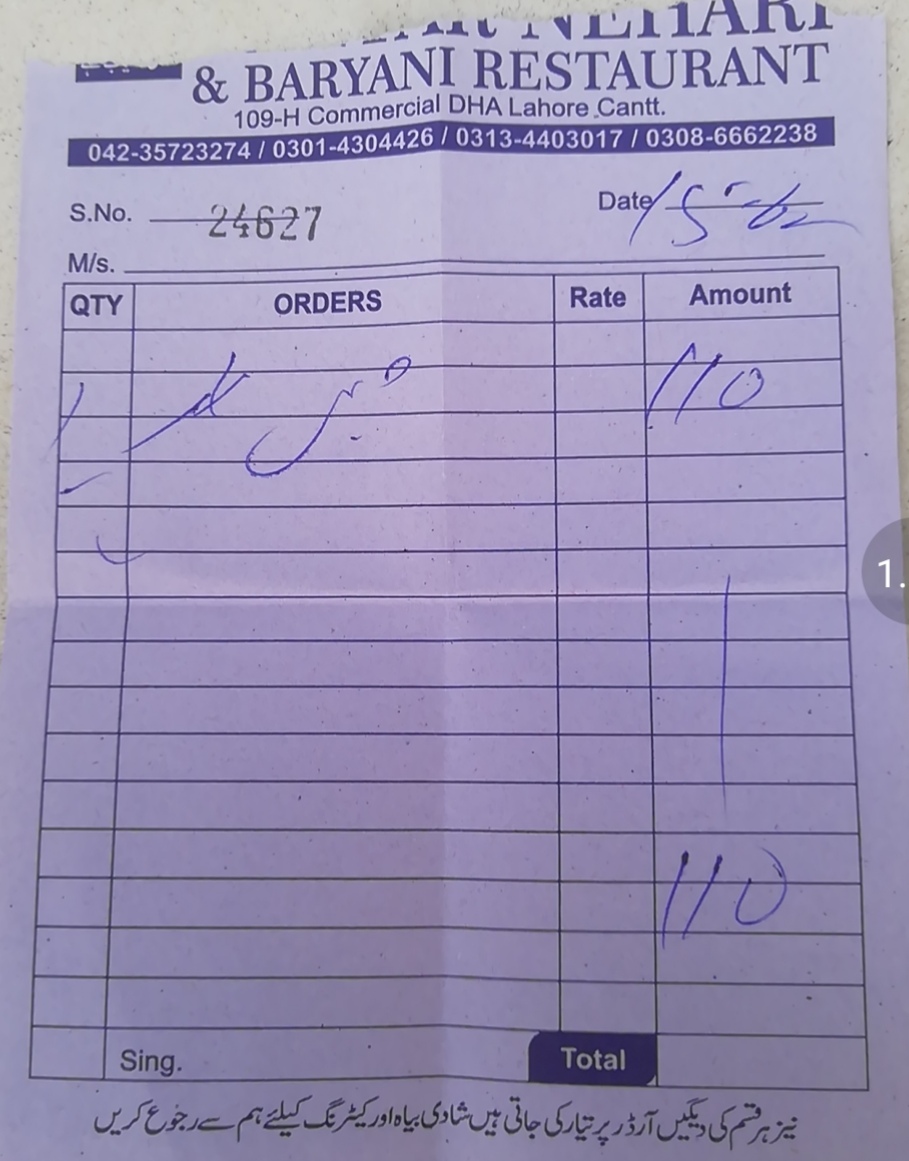 NEHARI
& BARYANI RESTAURANT
109-H Commercial DHA Lahore Cantt.
042-35723274 / 0301-4304426 / 0313-4403017 / 0308-6662238
S.No. 24627 Date
M/s.
QTY ORDERS Rate Amount
110
110
Sing. Total
نیز ہر قسم کی دیگیں آرڈر پر تیار کی جاتی ہیں شادی بیاہ اور کیٹرنگ کیلئے ہم سے رجوع کریں
1.